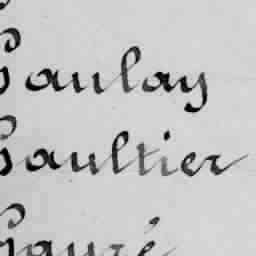 Gaulay
Gaultier
Gauré